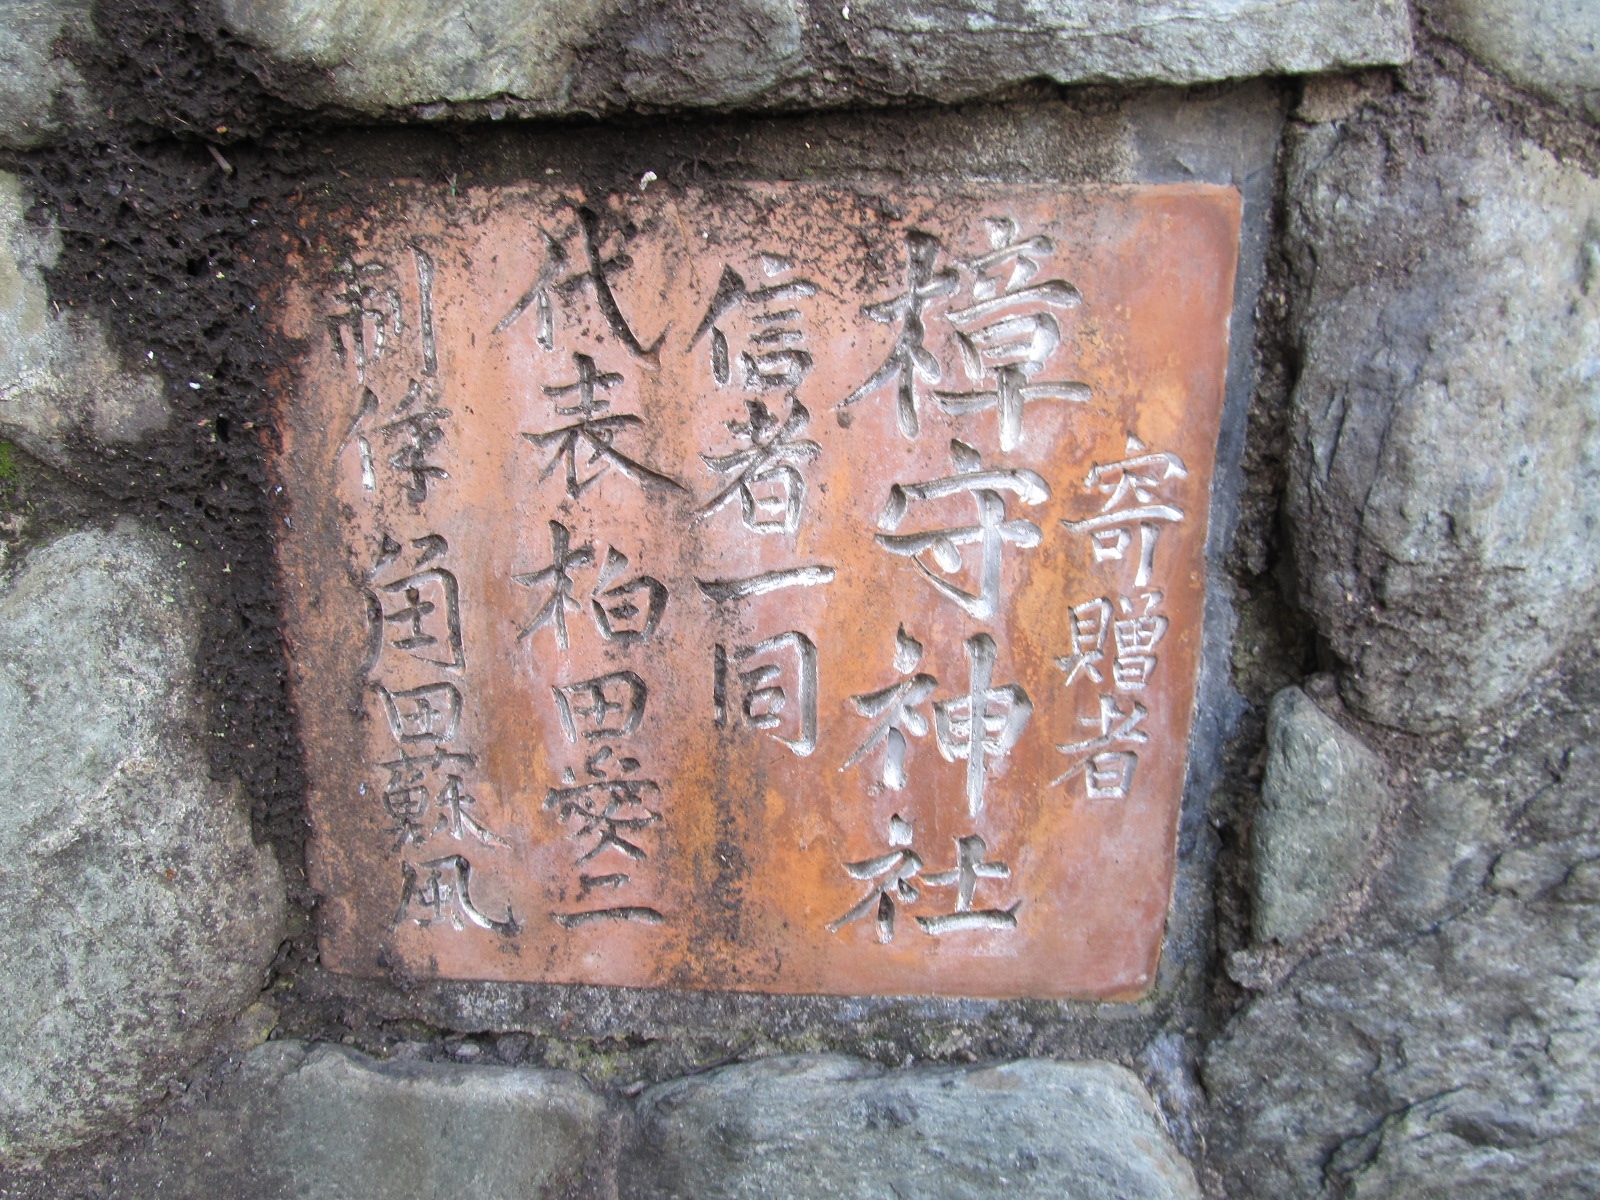 寄贈者
樟守神社
信者一同
代表 柏田愛二
制作 角田蘇風